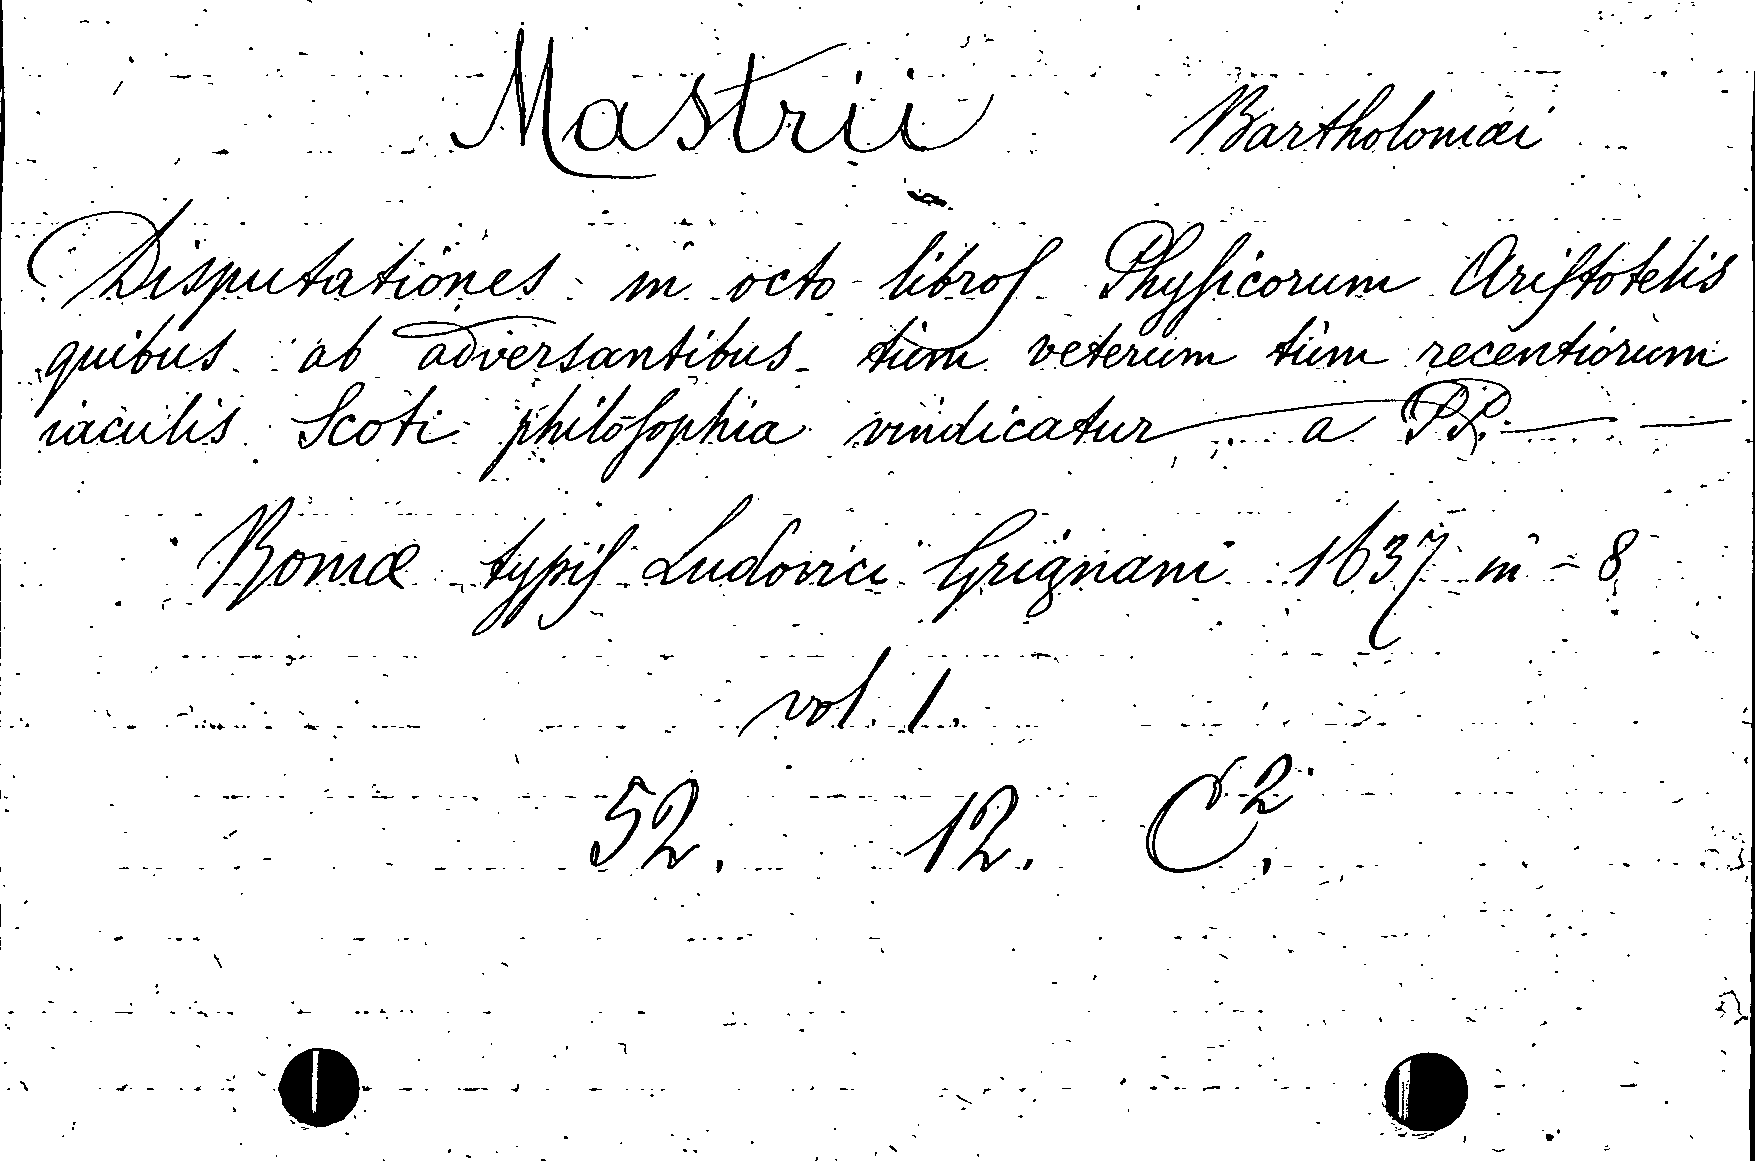 Mastrii Bartholomæi
Disputationes in octo libroſ Phyſicorum Ariſtotelis
quibus ab adversantibus tum veterum tum recentiorum
iaculis Scoti philoſophia vindicatur a PP. — —
Romæ typiſ Ludovici Grignani 1637 in - 8
vol. 1.
52. 12. C².